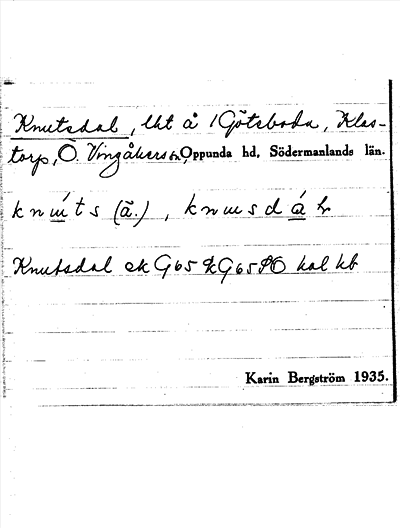 Knutsdal, lht å 1 Götsboda, Klas-
torp, Ö. Vingåkers sn, Oppunda hd, Södermanlands län.
knut́s (ā.), knusdál
Knutsdal ek G65 GG65SO hal kb
Karin Bergström 1935.